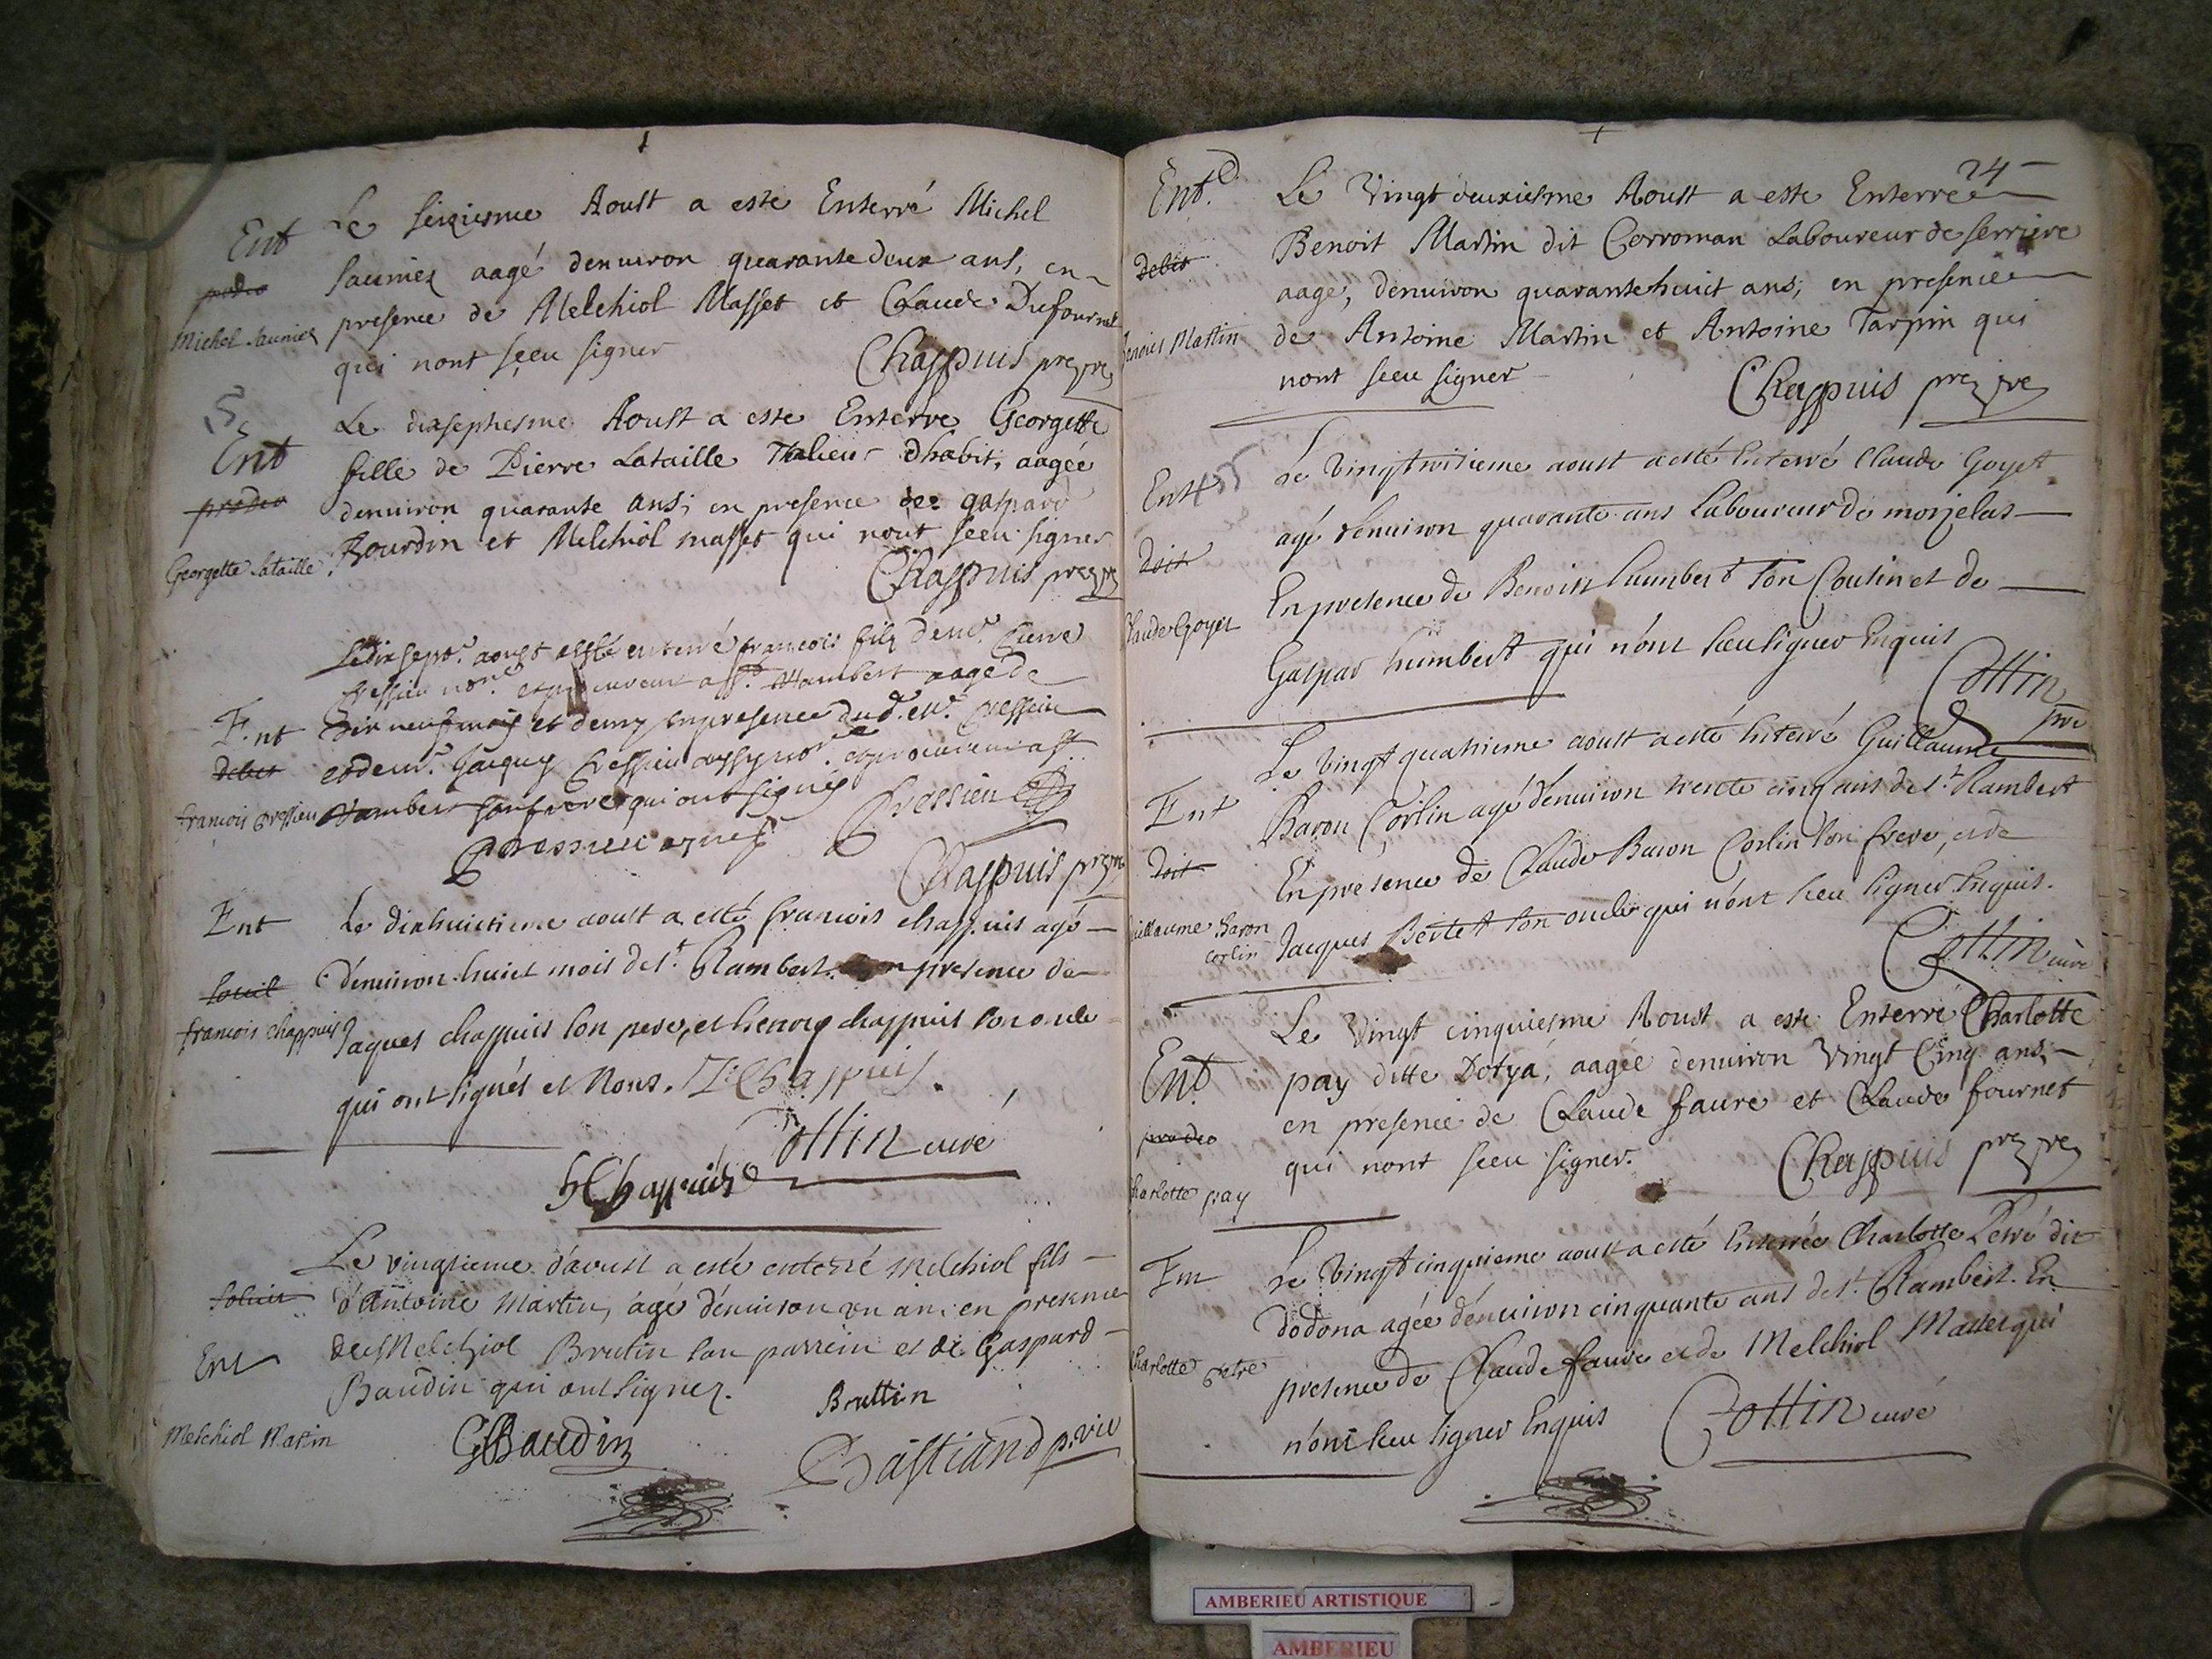 Ent
Le seiziesme Aoust a esté Enterré Michel
Saunier aagé denuiron quarante deux ans, en
Michel Saunier
presence de Melchiol Masset et Claude Dufournet
qui nont sceu signer
Chappuis prezpre
Le dixseptiesme Aoust a este Enterre Georgette
Ent
fille de Pierre Lataille Talieur dhabit, aagée
denuiron quarante ans; en presence de gaspard
Bourdin et Melchiol masset qui nont sceu signer
Georgette Lataille
Chappuis prezpre
Ledixsept.e aoust a esté enterré francois filz de mr. Pierre
Cressieu et procureur a St. Rambert aagé de
Ent
Dix neuf mois et demy en presence dud. mr. Cressieu
debet
et de mr. Jacques Cressieu aussy et procureur a St
francois Cressieu
Rambert son frere qui ont signés
Cressieu
Cressieu
Chappuis prezpre
Ent
Le dixhuictieme aoust a esté francois chappuis agé
d'enuiron huict mois de St. Rambert. En presence de
francois chappuis
Jaques chappuis son pere, et henry chappuis son oncle
qui ont signés et Nous. J. Chappuis.
Cottin curé
h Chappuis
Le vingtieme d'aoust a esté enterré Melchiol fils
d'Antoine Martin, agé d'enuiron un an; en presence
Ent
de Melchiol Brutin son parrein et de Gaspard
Baudin qui ont signez.
Bruttin
Melchiol Martin
G Baudin
Bastiand p. vic
24
Ent.
Le Vingt deuxiesme Aoust a este Enterre
Benoit Martin dit Corroman Laboureur de serriere
debet
aagé, denuiron quarantehuict ans; en presence
benoict Martin
de Antoine Martin et Antoine Tarpin qui
nont sceu signer
Chappuis prezpre
Ent
Le Vingtroisieme aoust a esté Enterré Claude Goyet
agé d'enuiron quarante ans Laboureur de morjelas
doit
En presence de Benoist humbert son Cousin et de
Claude Goyet
Gaspar humbert qui n'ont sceu signer Enquis
Cottin
pre
Le Vingt quatrieme aoust a esté Enterré Guillaume
Ent
Baron Corlin agé d'enuiron trente cinq ans de St. Rambert
doit
En presence de Claude Baron Corlin son frere, et de
Guillaume Baron
Corlin
Jacques Bertet son oncle qui n'ont sceu signer Enquis.
Cottin curé
Le Vingt cinquiesme Aoust a este Enterré Charlotte
Ent
pay ditte Dotya, aagée denuiron Vingt Cinq ans;
en presence de Claude faure et Claude fournet
qui nont sceu signer.
Chappuis prezpre
Charlotte pay
Ent
Le Vingt cinquieme aoust a esté Enterrée Charlotte Petré dit
dodona agée d'enuiron cinquante ans de St. Rambert. En
Charlotte Petré
presence de Claude faure et de Melchiol Masset qui
n'ont sceu signer Enquis
Cottin curé
AMBERIEU ARTISTIQUE
AMBERIEU